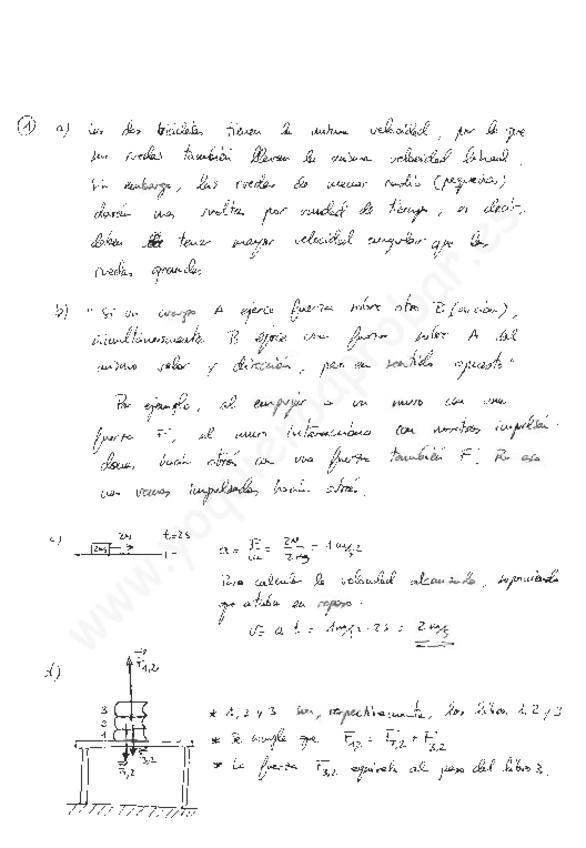 ① a) Las dos bicicletas tienen la misma velocidad, por lo que
sus ruedas también llevan la misma velocidad lineal.
Sin embargo, las ruedas de menor radio (pequeñas)
darán más vueltas por unidad de tiempo, es decir,
deben tener mayor velocidad angular que las
ruedas grandes.
b) "Si un cuerpo A ejerce fuerza sobre otro B (acción),
simultáneamente B ejerce una fuerza sobre A del
mismo valor y dirección, pero en sentido opuesto"
Por ejemplo, al empujar a un muro con una
fuerza F, el muro interacciona con nosotros impulsán-
donos hacia atrás con una fuerza también F. Por eso
nos vemos impulsados hacia atrás.
c) 2kg 2N t=2s a = F/m = 2N/2kg = 1 m/s²
Para calcular la velocidad alcanzada, suponiendo
que estaba en reposo.
v = a t = 1 m/s² · 2s = 2 m/s
d) F1,2
3
2
1
* 1, 2 y 3 son, respectivamente, los libros 1, 2 y 3
* Se cumple que F1,2 = F2,2 + F3,2
F2,2 F3,2
* La fuerza F3,2 equivale al peso del libro 3.
www.yoquieroaprobar.es